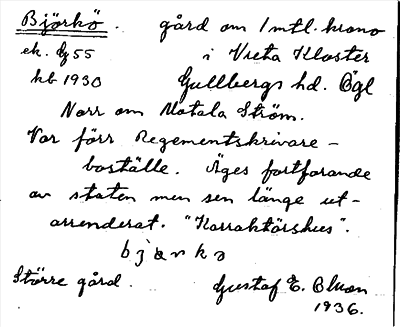 Björkö. gård om 1 mtl. krono
ek. bg 55 i Vreta Kloster
kb 1930 Gullbergs hd. Ögl
Norr om Motala Ström.
Var förr Regementskrivare-
boställe. Äges fortfarande
av staten men sen länge ut-
arrenderat. "Karraktärshus".
Större gård. Gustaf E. Bluon
1936.